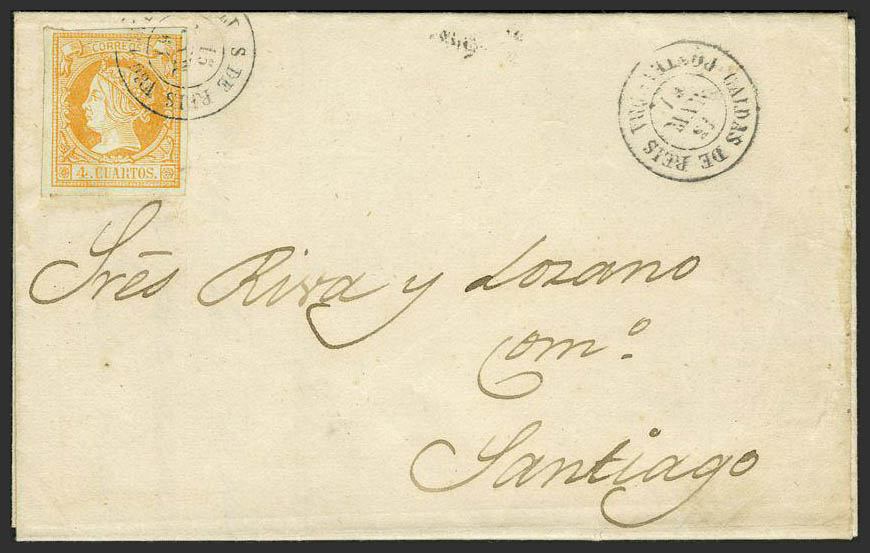 CORREOS
4 CUARTOS.
S DE REIS
15
CALDAS DE REIS
Srēs Riva y Lozano
Com.º
Santiago